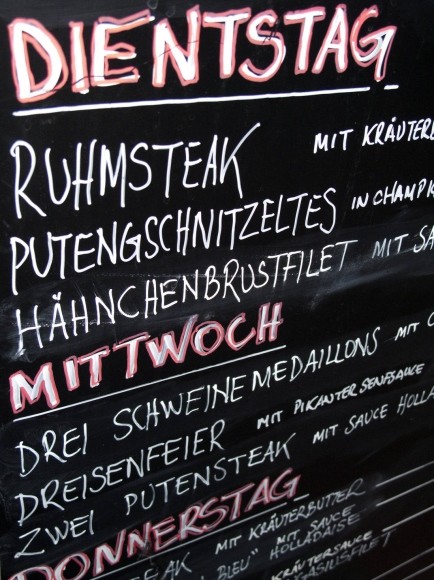 DIENTSTAG
RUHMSTEAK MIT KRÄUTERB
PUTENGSCHNITZELTES IN CHAMPI
HÄHNCHENBRUSTFILET MIT SA
MITTWOCH
DREI SCHWEINEMEDAILLONS MIT
DREISENFEIER MIT PIKANTER SENFSAUCE
ZWEI PUTENSTEAK MIT SAUCE HOLLA
DONNERSTAG
STEAK MIT KRÄUTERBUTTER
"BLEU" MIT SAUCE
HOLLADAISE
KRÄUTERSAUCE